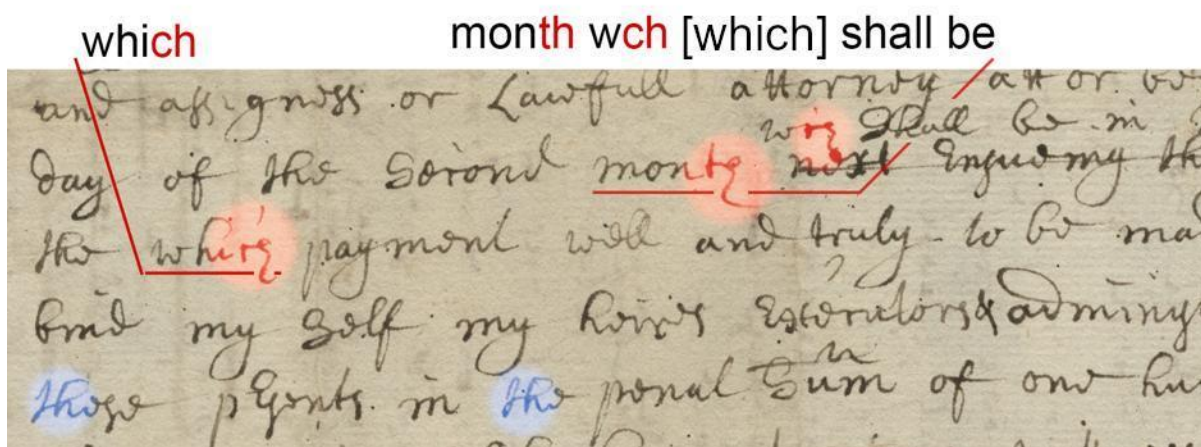 which
month wch [which] shall be
and assigness or Lawfull attorney att or be
wch Shall be in
day of the Second month next Ensueing th
the which payment well and truly to be ma
bind my Self my heires Executors & adminis
these psents in the penal Sum of one hu